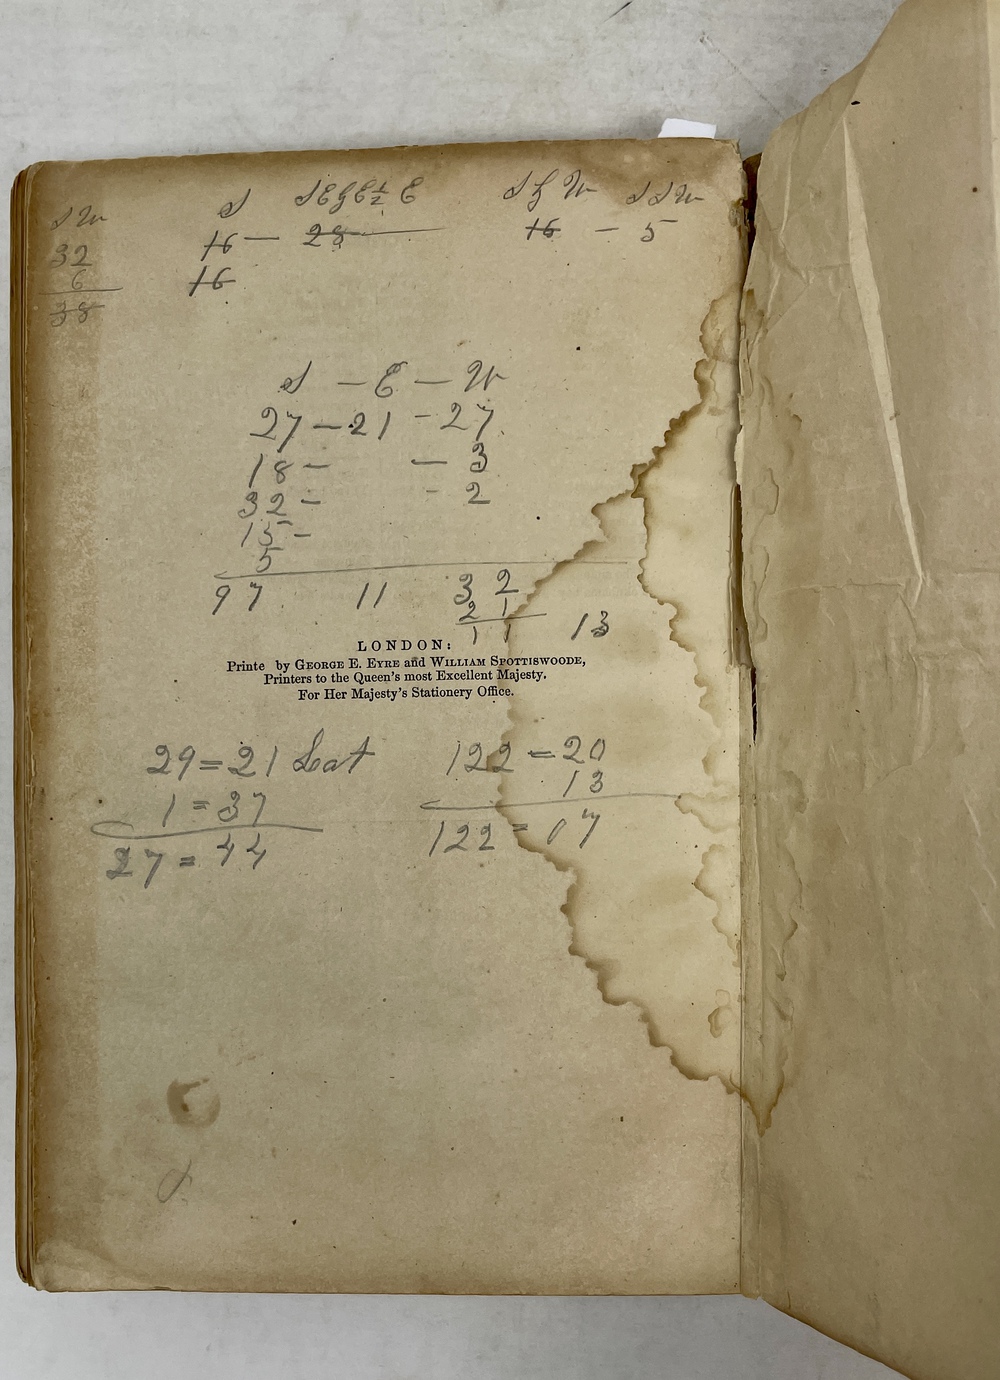 S W S SEbE½E SbW SSW
32 16 — 28 16 — 5
6 16
38
S — E — W
27 — 21 — 27
18 — — 3
32 — - 2
15 —
5
97 11 32
21
11 13
LONDON:
Printe by GEORGE E. EYRE and WILLIAM SPOTTISWOODE,
Printers to the Queen's most Excellent Majesty.
For Her Majesty's Stationery Office.
29 = 21 Lat 122 = 20
1 = 37 13
27 = 44 122 = 07